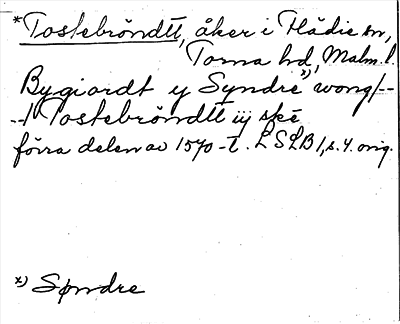 *Tostebröndtt, åker i Flädie sn,
Torna hd, Malm. l.
Bygiardt y Syndre x) wong/--
--/ Tostebröndtt iij skē
förra delen av 1570-t. LSLB 1, s. 4. orig.
x) Søndre